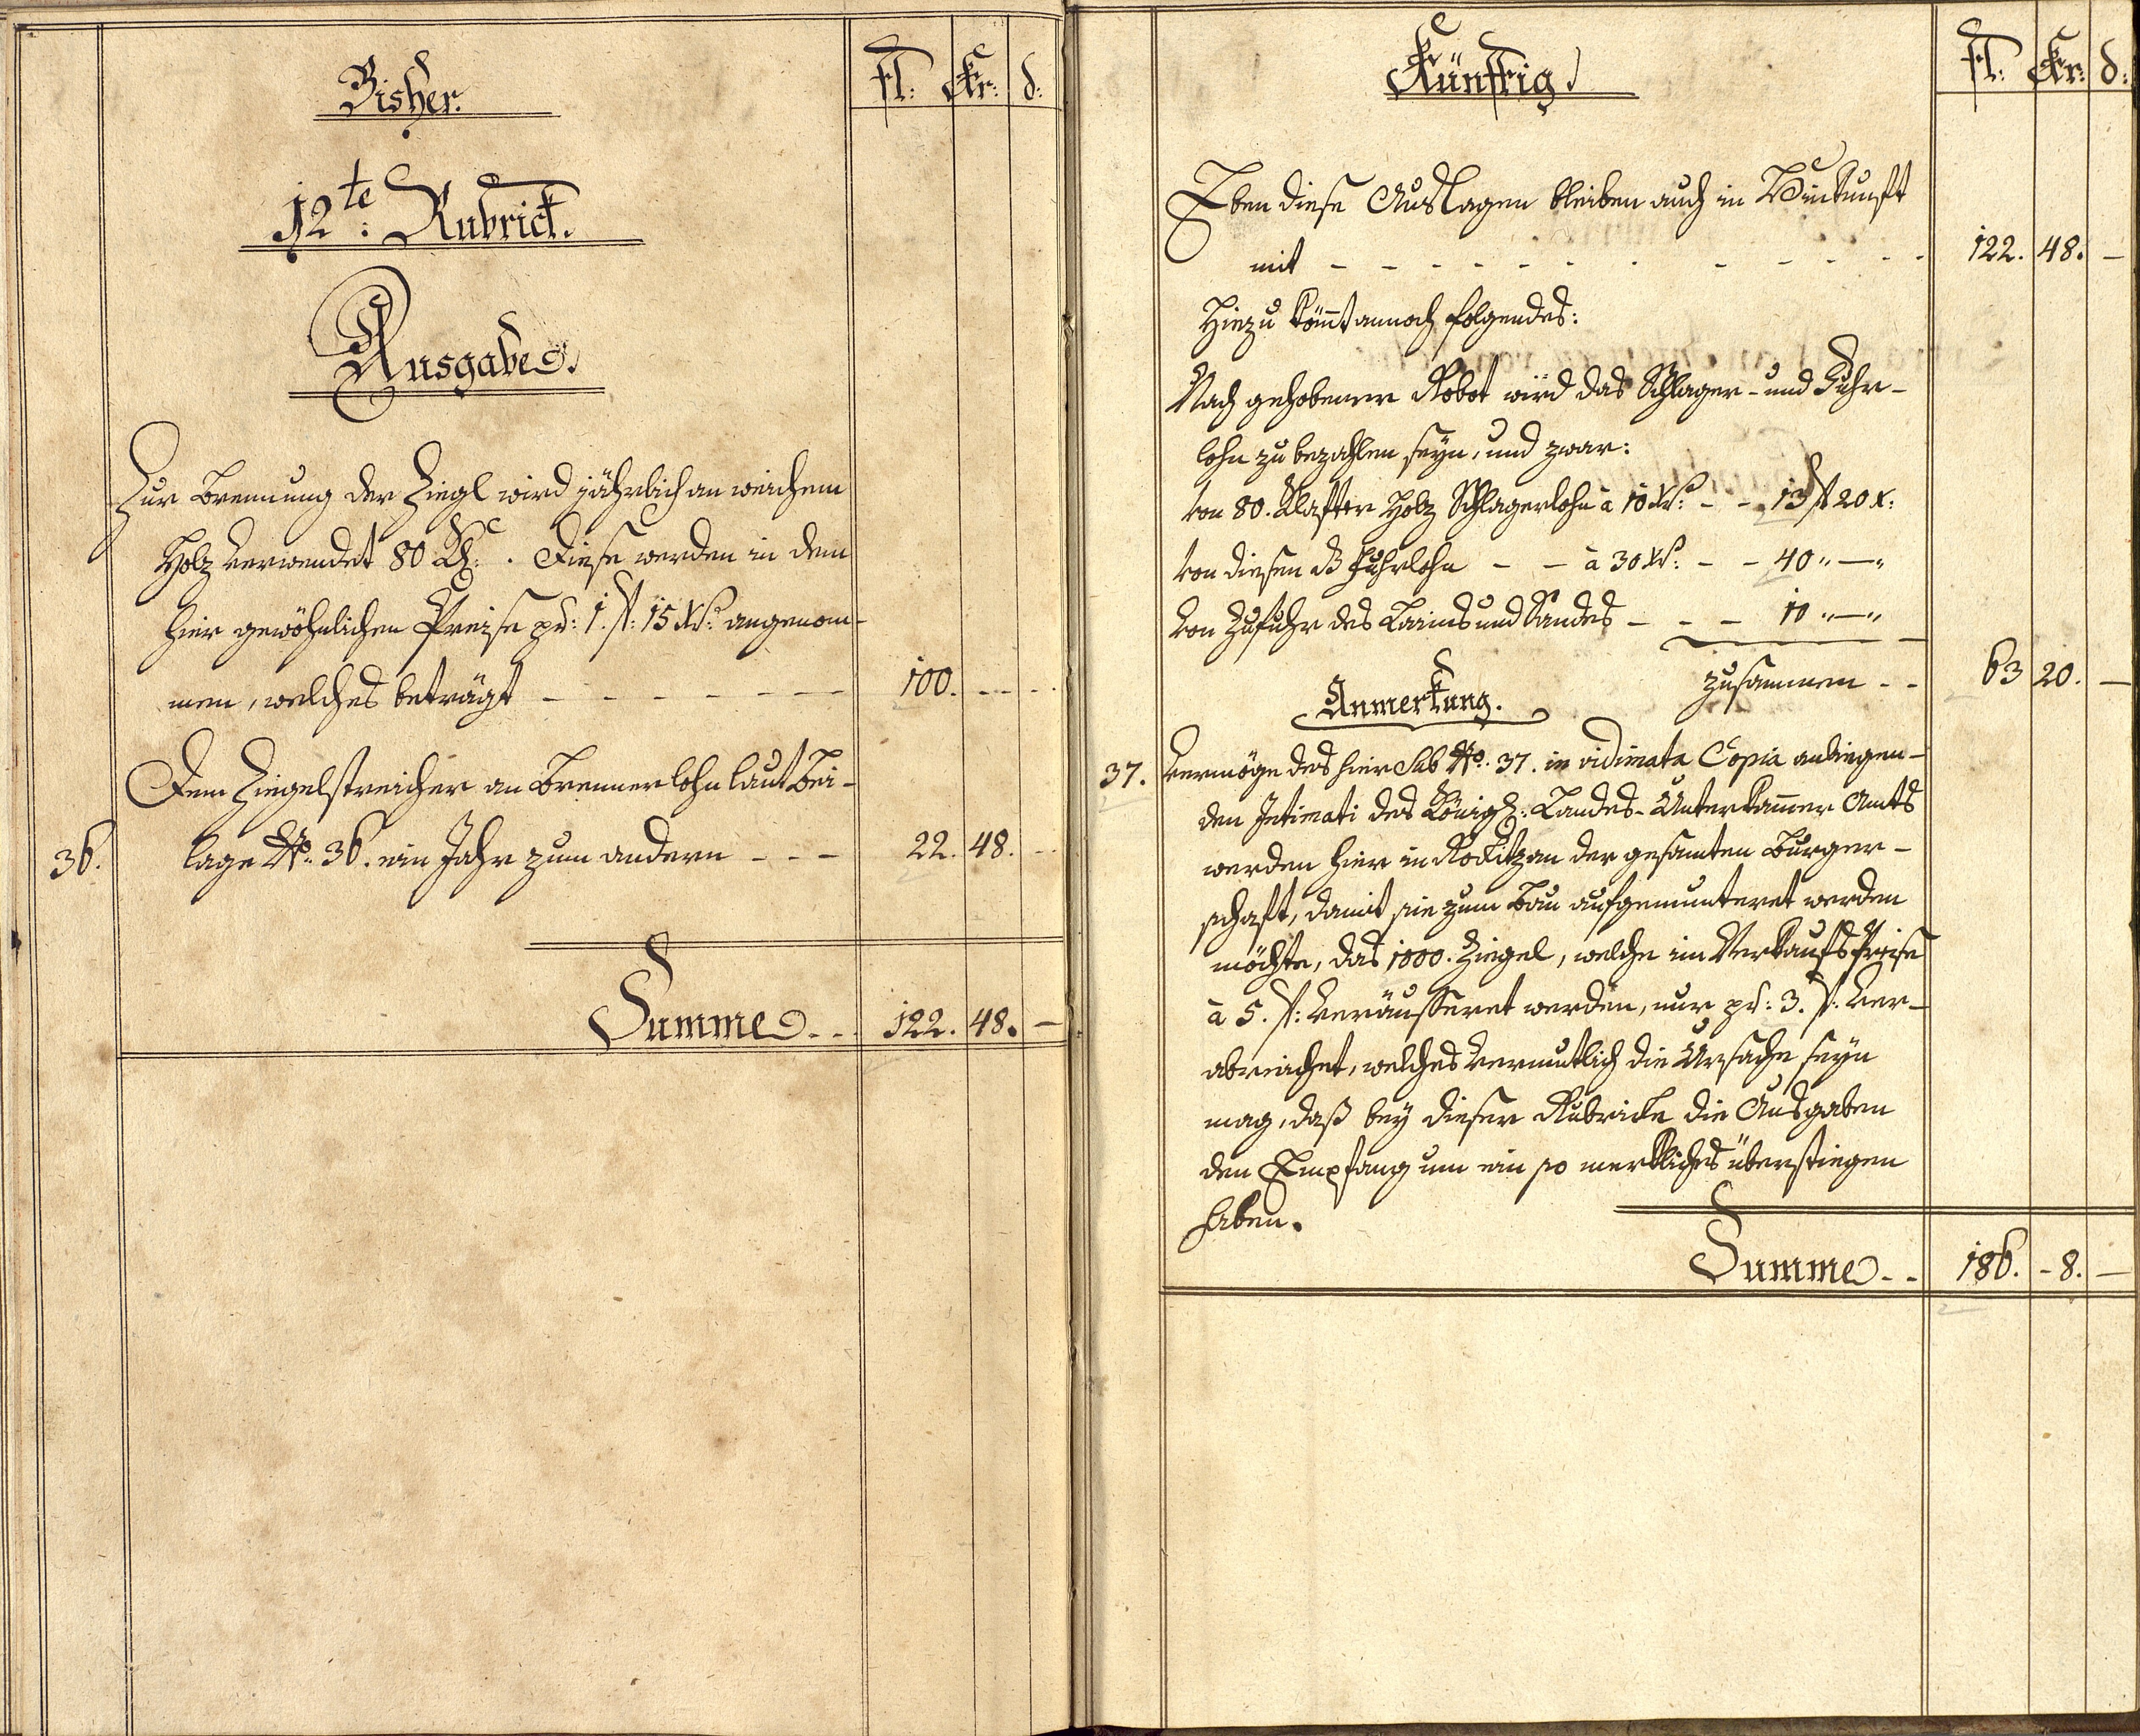 Bisher.
fl: Kr: d:
12te: Rubrick.
Ausgabe.
Zur Brennung der Ziegl wird jährlich an weichem
Holz verwendet 80 Kl: . Diese werden in dem
hier gewöhnlichen Preise pr: 1. f: 15 Xr: angenom-
men, welches beträgt - - - - - - - 100. - - -
Dem Ziegelstreicher an Brennerlohn laut Bei-
36. lage No: 36. ein Jahr zum andern - - - 22. 48. -
Summe - - 122. 48. -
Künftig
fl: Kr: d:
Eben diese Auslagen bleiben auch in Zukunft
mit - - - - - - - - - - - - 122. 48. -
Hiezu kömt annoch folgendes:
Nach gehobener Robot wird das Schlager- und Fuhr-
lohn zu bezahlen seyn, und zwar:
von 80. Klafter Holz Schlagerlohn à 10 Xr: - - 13 f 20 x:
von diesen Fuhrlohn - - à 30 Xr: - - 40 " — "
von Zufuhr des Laims und Sandes - - - 10 " — "
zusammen - - 63 20. -
Anmerkung.
37. Vermöge des hier Sub No: 37. in vidimata Copia anliegen-
den Intimati des Königl: Landes-Unterkammer Amts
werden hier in Rokitzan der gesamten Burger-
schaft, damit sie zum Bau aufgemunteret werden
möchte, das 1000. Ziegel, welche im Verkaufs Preise
à 5. f: veräusseret werden, nur pr: 3. f: ver-
abreichet, welches vermutlich die Ursache seyn
mag, daß bey dieser Rubricke die Ausgaben
den Empfang um ein so merkliches überstiegen
haben.
Summe - - 186. - 8. -